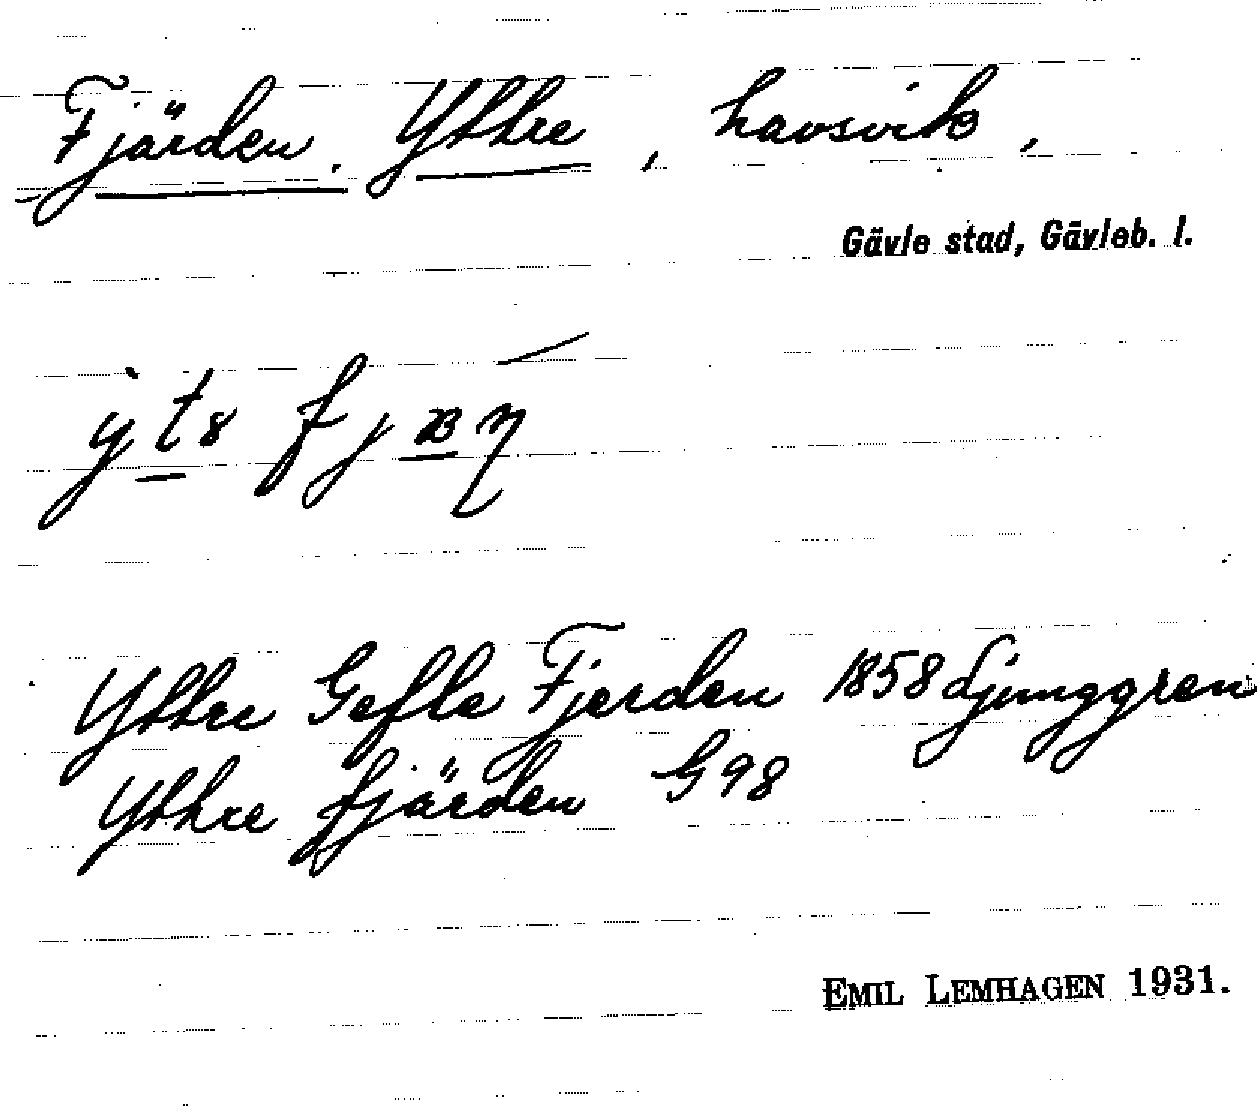 Fjärden, Yttre, havsvik,
Gävle stad, Gävleb. l.
Yttre Gefle Fjerden 1858 Ljunggren
Yttre fjärden G 98
EMIL LEMHAGEN 1931.